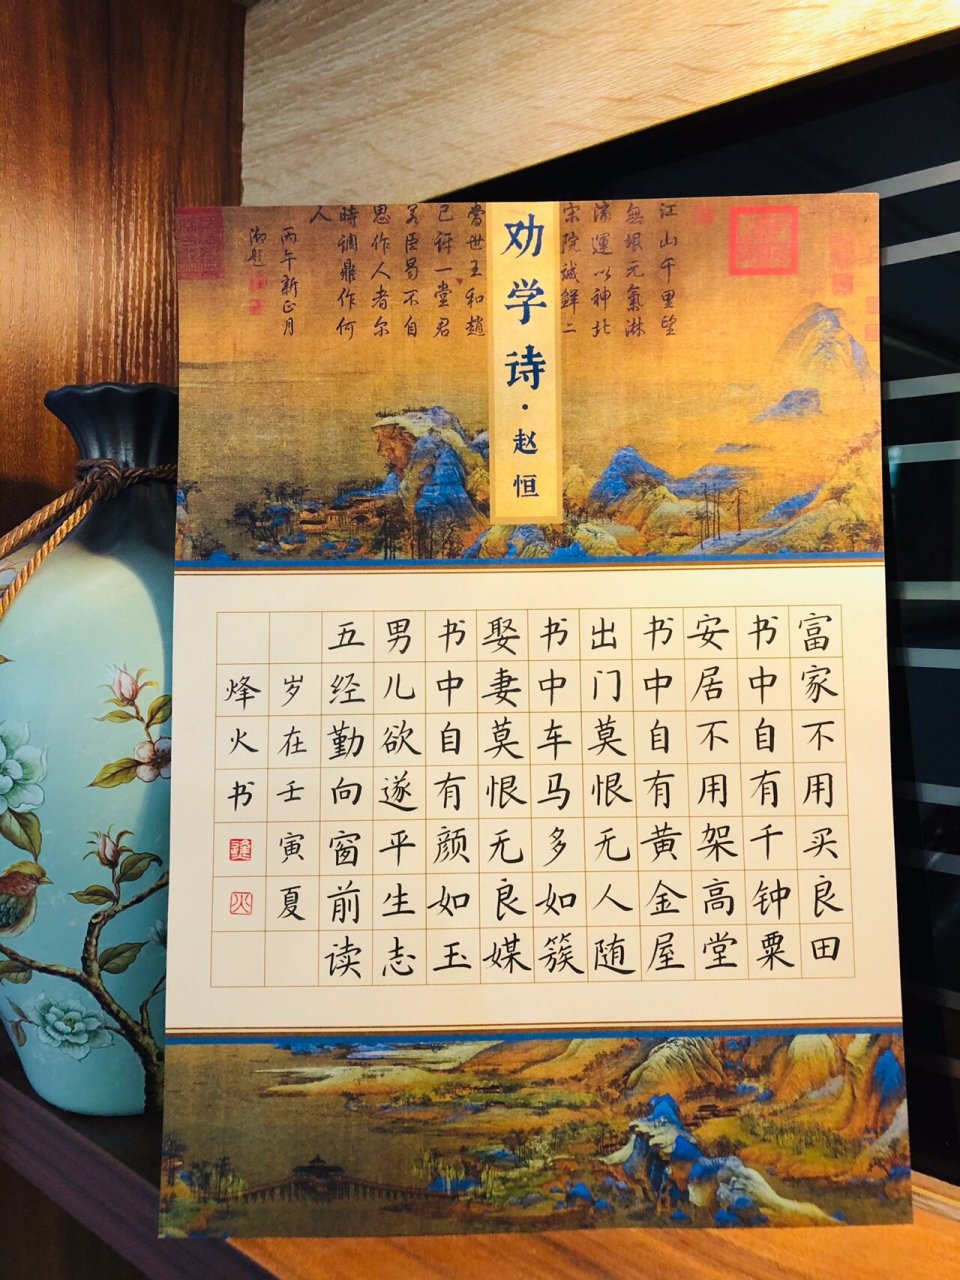 劝学诗·赵恒
江山千里望
無垠元氣淋
漓運以神北
宋院誠鮮二
當世王和趙
已訝一堂君
若臣曷不自
思作人者尔
時調鼎作何
人
丙午新正月
御題
富家不用买良田
书中自有千钟粟
安居不用架高堂
书中自有黄金屋
出门莫恨无人随
书中车马多如簇
娶妻莫恨无良媒
书中自有颜如玉
男儿欲遂平生志
五经勤向窗前读
岁在壬寅夏
烽火书
火